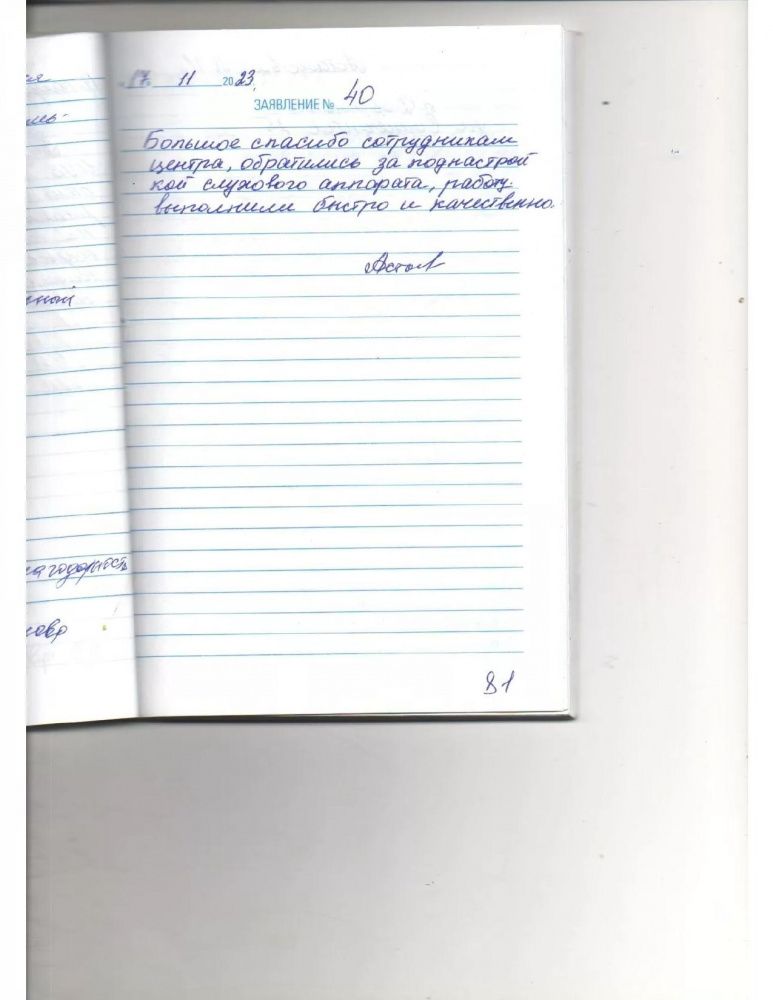 17 11 2023
ЗАЯВЛЕНИЕ № 40
Большое спасибо сотрудникам
центра, обратились за поднастрой
кой слухового аппарата, работу
выполнили быстро и качественно.
ной
агодарность
81